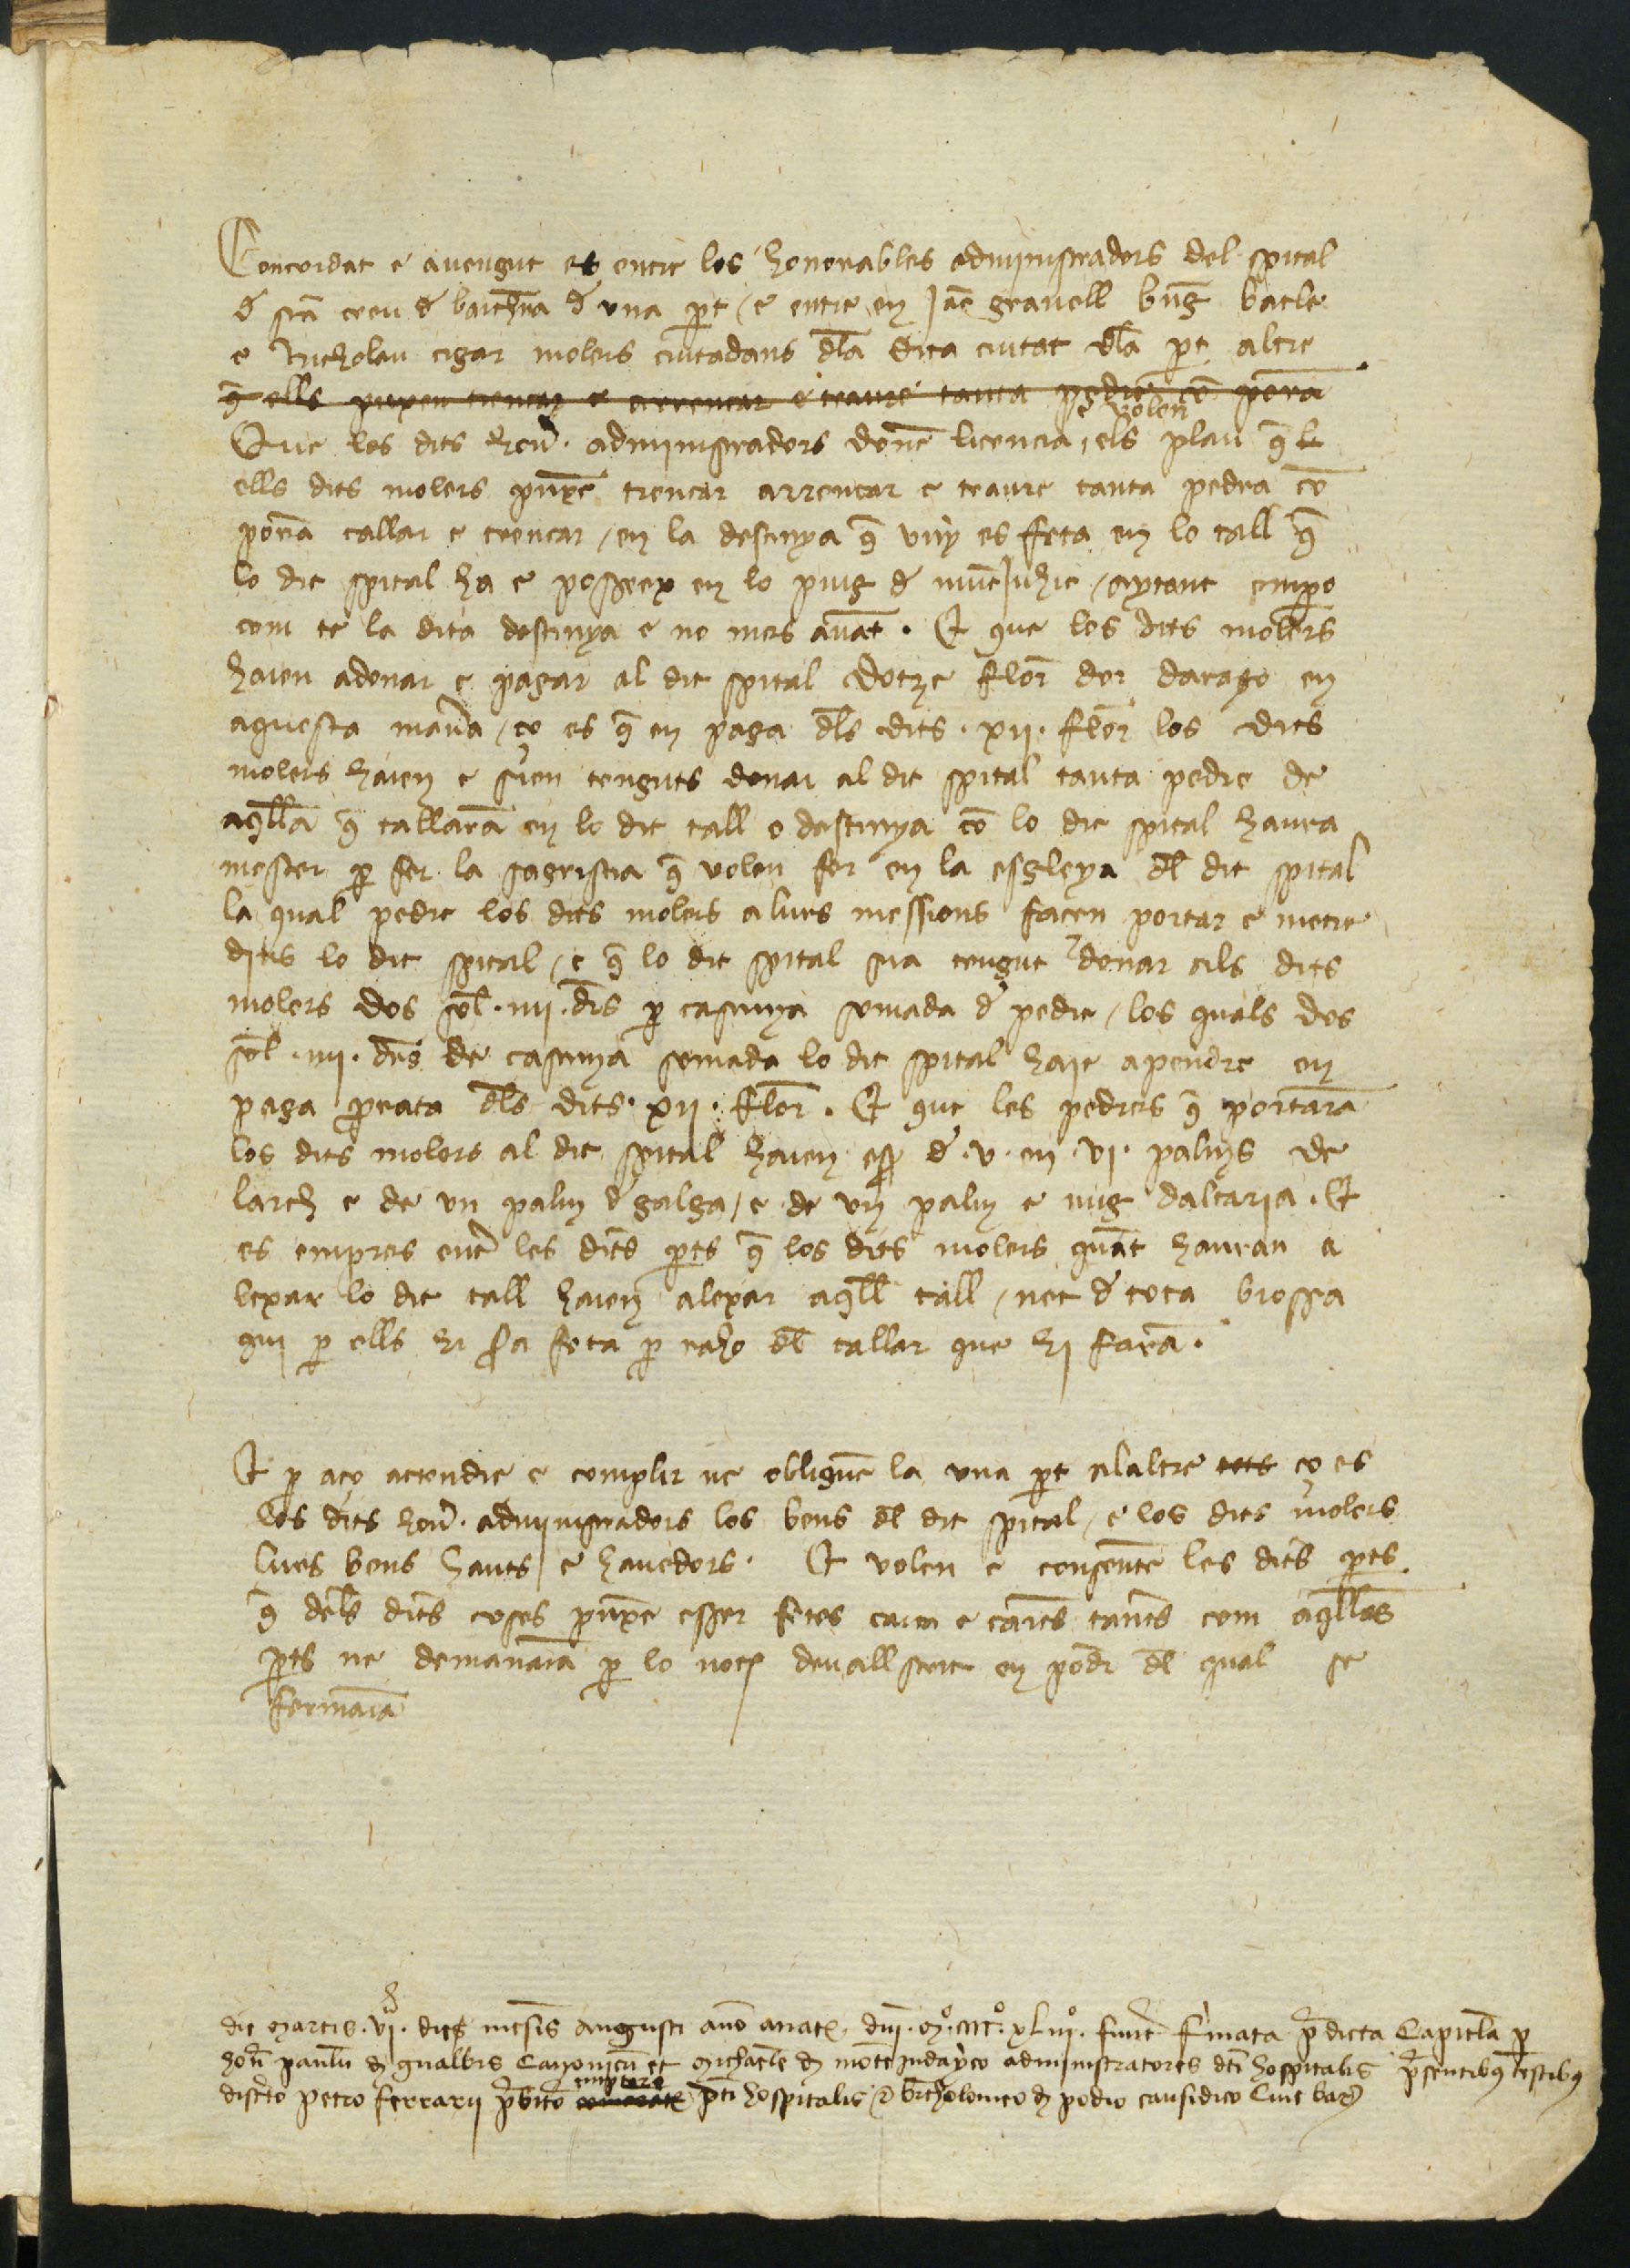 Concordat e avengut es entre los honorables administradors del spital
d sta creu d barchna d una pt / e entre en Jac gravell bng bacle
e Nicholau cigar molers ciutadans dla dita ciutat dla pt altre
q ells puxen trencar e arrencar e traure tanta pedre co pora
Que los dits hon. administradors done licencia e volen els plau q
ells dits molers puxe trencar arrencar e traure tanta pedra co
pora tallar e trencar / en la destinya q vuy es feta en lo tall q
lo dit spital ha e posseex en lo puig d muntJuhic / aytant empo
com te la dita destinya e no mes avat . Et que los dits molers
haien adonar e pagar al dit spital dotze flor dor darago en
aquesta mana / ço es q en paga dls dits . xii . flor los dits
molers haien e sien tenguts donar al dit spital tanta pedre de
aqlla q tallara en lo dit tall o dastinya co lo dit spital haura
mester p fer la sagristia q volen fer en la esgleya dl dit spital
la qual pedre los dits molers a lurs messions facen portar e metre
dins lo dit spital / e q lo dit spital sia tengut donar als dits
molers dos sol . iiii . drs p cascuna somada d pedre / los quals dos
sol . iiii . drs de cascuna somada lo dit spital haie apendre en
paga prata dls dits . xii . flor . Et que les pedres q portara
los dits molers al dit spital haien esser d . v . en . vi . palms de
larch e de un palm d galga / e de un palm e mig daltaria . Et
es empres entr les dits pts q los dits molers quat hauran a
lexar lo dit tall haien alexar aqll tall / net d tota brossa
qui p ells hi sra feta p raho dl tallar que hi fara .
Et p aço attendre e complir ne oblique la una pt alaltre tots ço es
los dits hon . administradors los bens dl dit spital / e los dits molers
lurs bens hauts e havedors . Et volen e consente les dits pts
q dels dits coses puxe esser fetes carta e cartes tantes com aqlles
pts ne demanara p lo not devall scrit en podr dl qual se
fermara
die martis . vi . dies mesis Augusti ano anat dni . mº . cccc . xLiiiº . fuert fmata pdicta Capitla p
hon paulu d gualbis Canonicu et michaele d mote judayco administratores dti hospitalis psentibus testibus
discreto petro ferrarii pbro emptore pti hospitalis / et btholomeo d podio causidico Cive barc